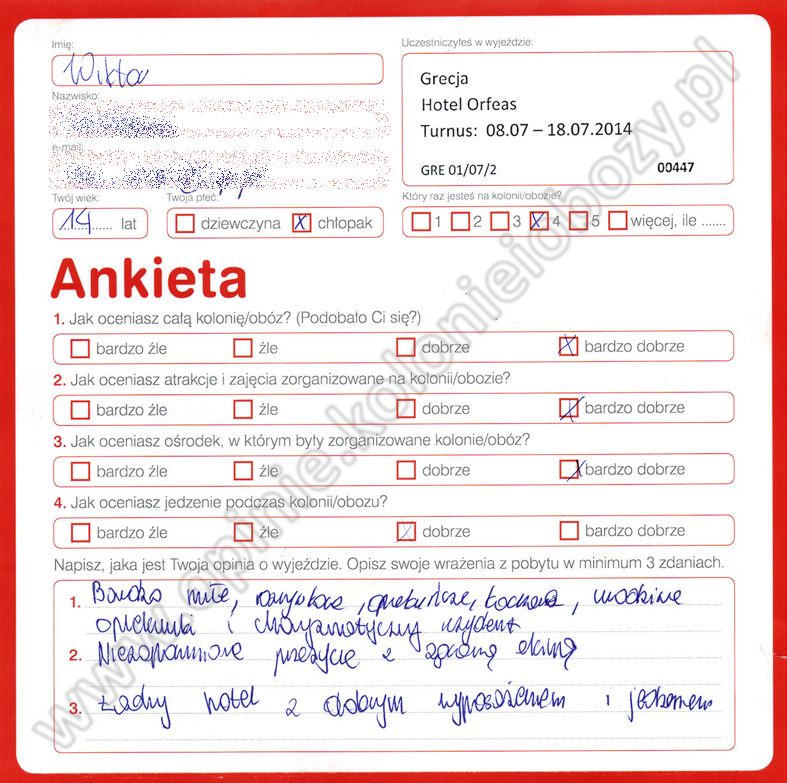 Imię:
Wiktor
Uczestniczyłeś w wyjeździe:
Grecja
Hotel Orfeas
Turnus: 08.07 – 18.07.2014
GRE 01/07/2 00447
Nazwisko:
e-mail:
Twój wiek:
14 lat
Twoja płeć:
dziewczyna X chłopak
Który raz jesteś na kolonii/obozie?
1 2 3 X 4 5 więcej, ile .......
Ankieta
1. Jak oceniasz całą kolonię/obóz? (Podobało Ci się?)
bardzo źle źle dobrze X bardzo dobrze
2. Jak oceniasz atrakcje i zajęcia zorganizowane na kolonii/obozie?
bardzo źle źle dobrze X bardzo dobrze
3. Jak oceniasz ośrodek, w którym były zorganizowane kolonie/obóz?
bardzo źle źle dobrze X bardzo dobrze
4. Jak oceniasz jedzenie podczas kolonii/obozu?
bardzo źle źle X dobrze bardzo dobrze
Napisz, jaka jest Twoja opinia o wyjeździe. Opisz swoje wrażenia z pobytu w minimum 3 zdaniach.
1. Bardzo miłe, opiekuńcze, kochane,
i charyzmatyczny rezydent
2. Niezapomniane przeżycie z zgraną ekipą
3. Ładny hotel z dobrym wyposażeniem i jedzeniem
www.opinie.kolonieiobozy.pl